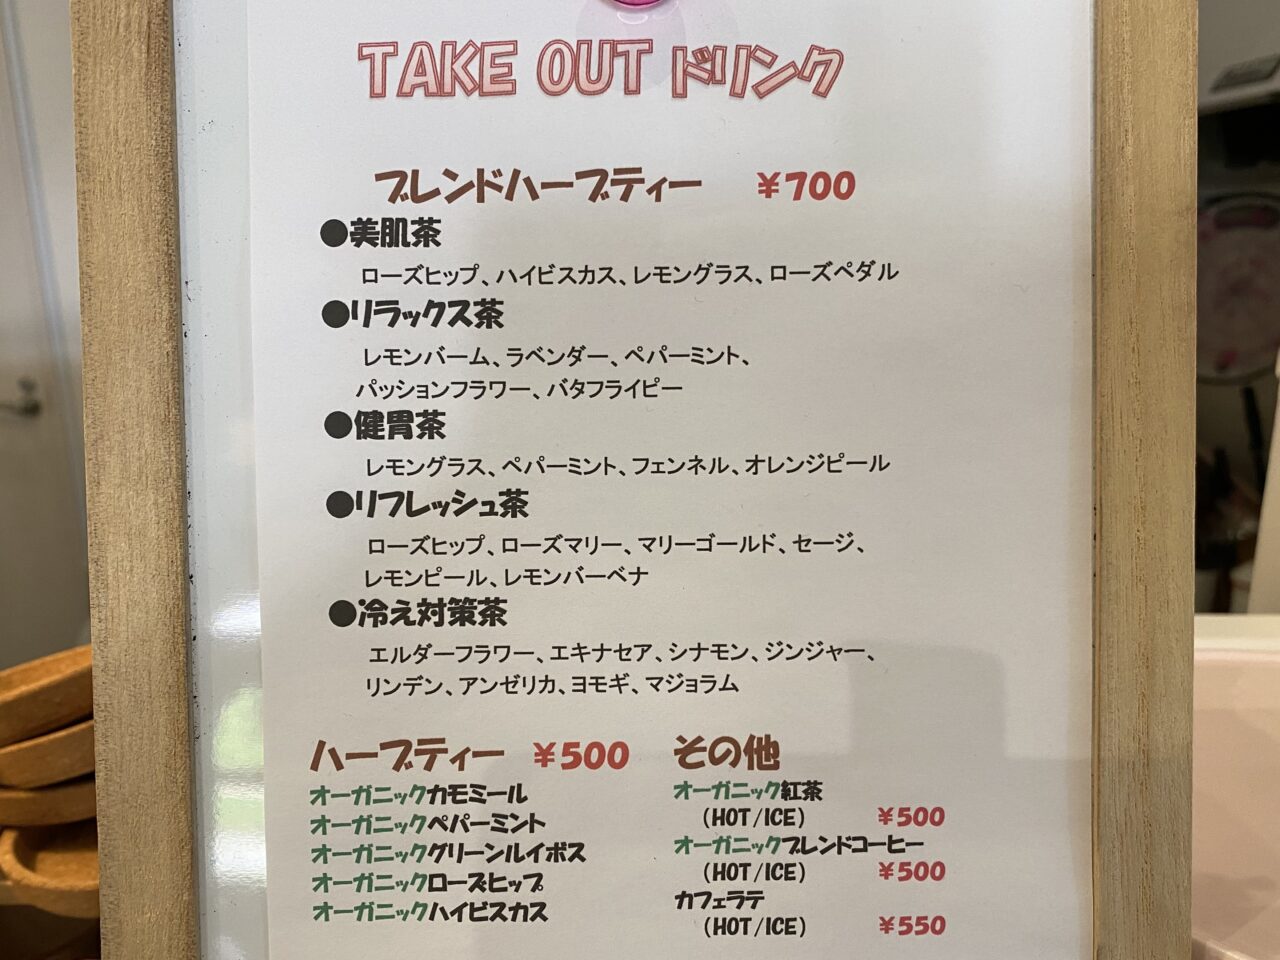 TAKE OUT ドリンク
ブレンドハーブティー ￥700
●美肌茶
ローズヒップ、ハイビスカス、レモングラス、ローズペダル
●リラックス茶
レモンバーム、ラベンダー、ペパーミント、
パッションフラワー、バタフライピー
●健胃茶
レモングラス、ペパーミント、フェンネル、オレンジピール
●リフレッシュ茶
ローズヒップ、ローズマリー、マリーゴールド、セージ、
レモンピール、レモンバーベナ
●冷え対策茶
エルダーフラワー、エキナセア、シナモン、ジンジャー、
リンデン、アンゼリカ、ヨモギ、マジョラム
ハーブティー ￥500
オーガニックカモミール
オーガニックペパーミント
オーガニックグリーンルイボス
オーガニックローズヒップ
オーガニックハイビスカス
その他
オーガニック紅茶
(HOT/ICE) ￥500
オーガニックブレンドコーヒー
(HOT/ICE) ￥500
カフェラテ
(HOT/ICE) ￥550